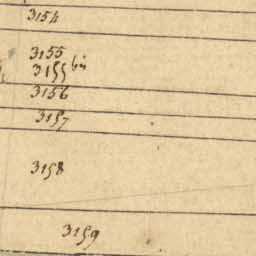 3154
3155
3155 bis
3156
3157
3158
3159